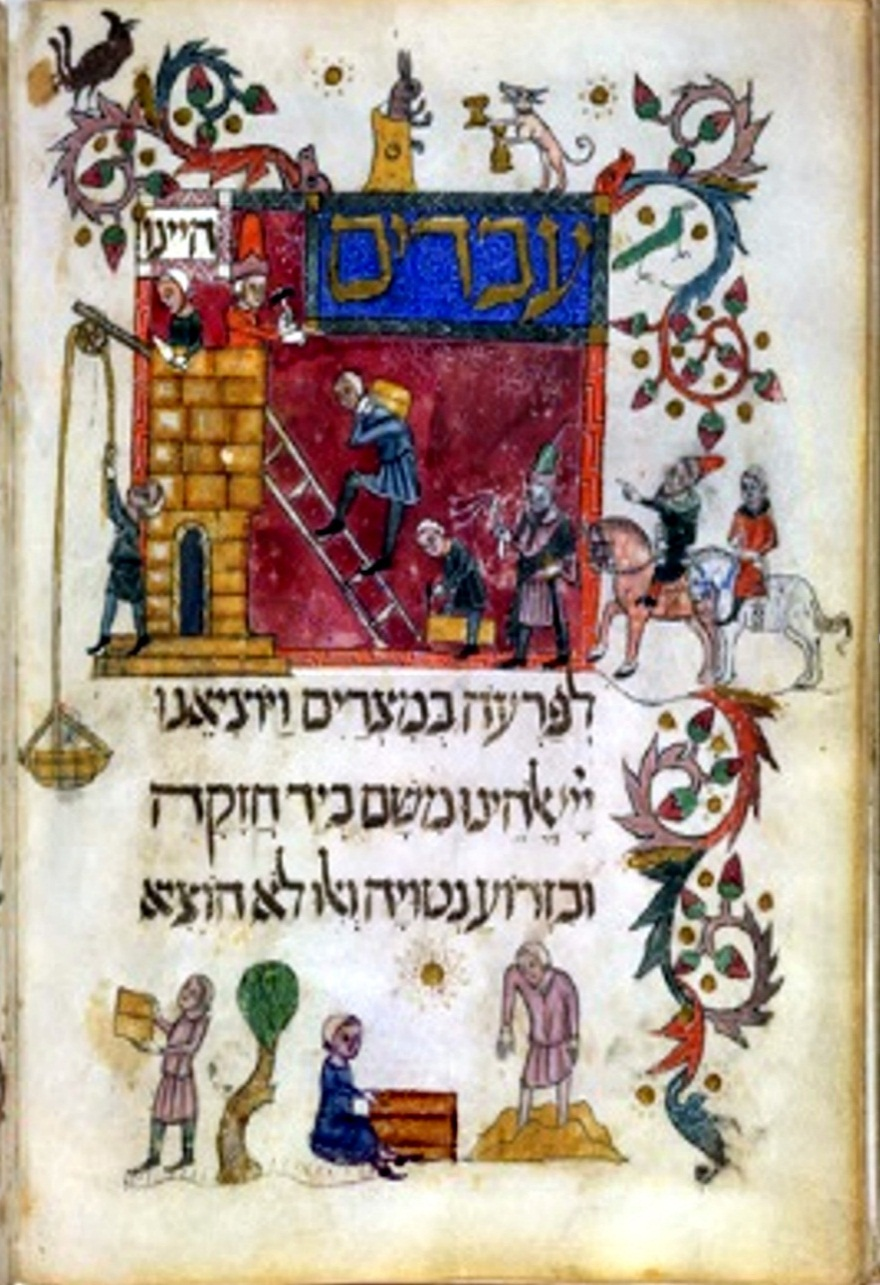 עבדים היינו
לְפַרְעֹה בְּמִצְרַיִם וַיּוֹצִיאֵנוּ
יְיָ אֱלֹהֵינוּ מִשָּׁם בְּיָד חֲזָקָה
וּבִזְרוֹעַ נְטוּיָה וְאִלּוּ לֹא הוֹצִיא